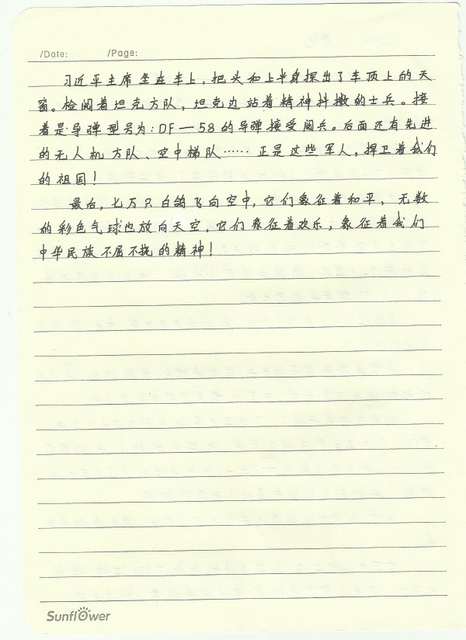 /Date: /Page:
习近平主席坐在车上，把头和上半身探出了车顶上的天
窗。检阅着坦克方队，坦克边站着精神抖擞的士兵。接
着是导弹型号为：DF－58的导弹接受阅兵。后面还有先进
的无人机方队、空中梯队……正是这些军人，捍卫着我们
的祖国！
最后，七万只白鸽飞向空中，它们象征着和平，无数
的彩色气球也放向天空，它们象征着欢乐，象征着我们
中华民族不屈不挠的精神！
Sunflower